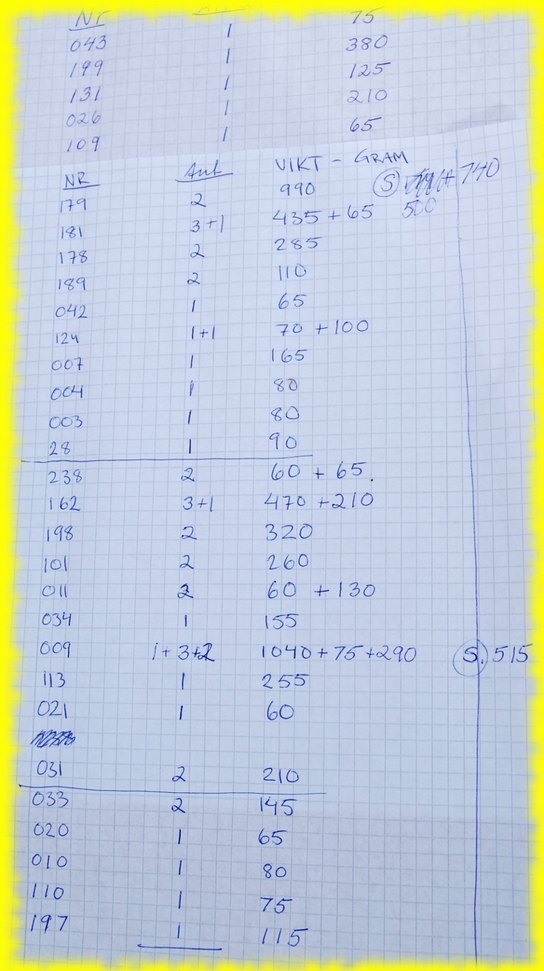 Nr 75
043 1 380
199 1 125
131 1 210
026 1 65
109 1
NR Ant VIKT - GRAM
179 2 990 S + 740
181 3+1 435 + 65 500
178 2 285
189 2 110
042 1 65
124 1+1 70 + 100
007 1 165
004 1 80
003 1 80
28 1 90
238 2 60 + 65.
162 3+1 470 + 210
198 2 320
101 2 260
011 2 60 + 130
034 1 155
009 1+3+2 1040+75+290 S. 515
113 1 255
021 1 60
031 2 210
033 2 145
020 1 65
010 1 80
110 1 75
197 1 115